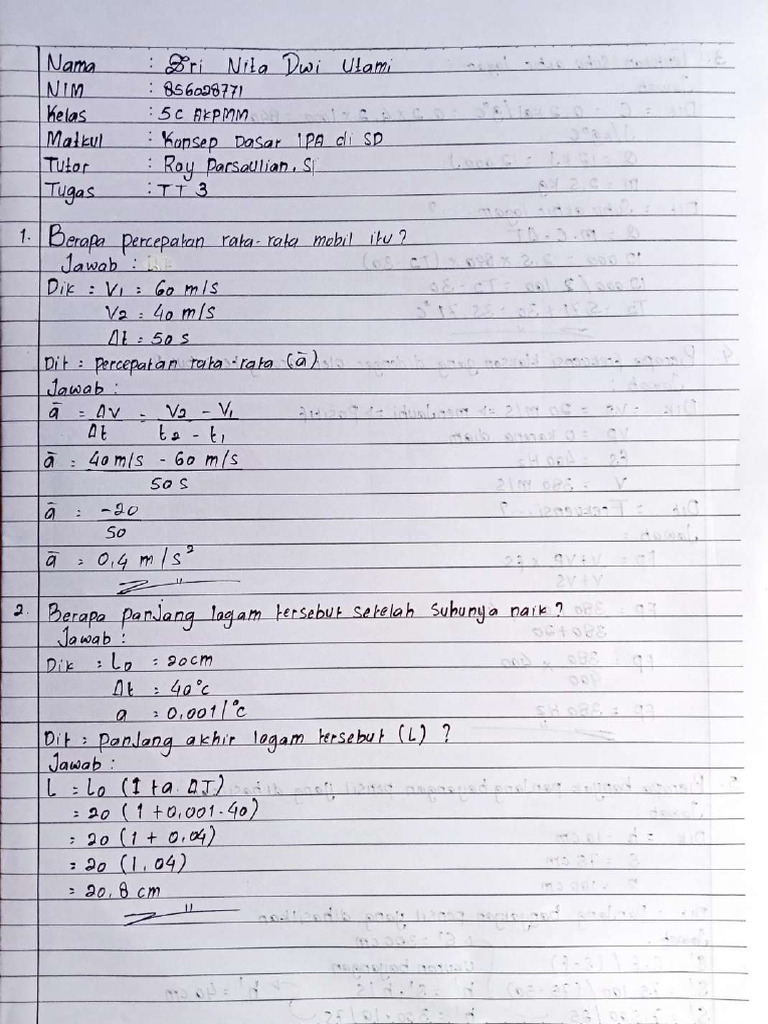 Nama : Sri Nita Dwi Utami
NIM : 856028771
Kelas : 5C AKPMM
Matkul : Konsep Dasar IPA di SD
Tutor : Roy Parsaulian, S
Tugas : TT 3
1. Berapa percepatan rata-rata mobil itu?
Jawab :
Dik : V1 = 60 m/s
V2 = 40 m/s
Δt = 50 s
Dit : percepatan rata-rata (ā)
Jawab :
ā = ΔV/Δt = V2 - V1/t2 - t1
ā = 40 m/s - 60 m/s/50 s
ā = -20/50
ā = 0,4 m/s²
2. Berapa panjang logam tersebut setelah suhunya naik?
Jawab :
Dik : L0 = 20 cm
Δt = 40°c
a = 0,001/°c
Dit : panjang akhir logam tersebut (L) ?
Jawab :
L = L0 (1 + a. ΔT)
= 20 (1 + 0,001 . 40)
= 20 (1 + 0,04)
= 20 (1,04)
= 20,8 cm